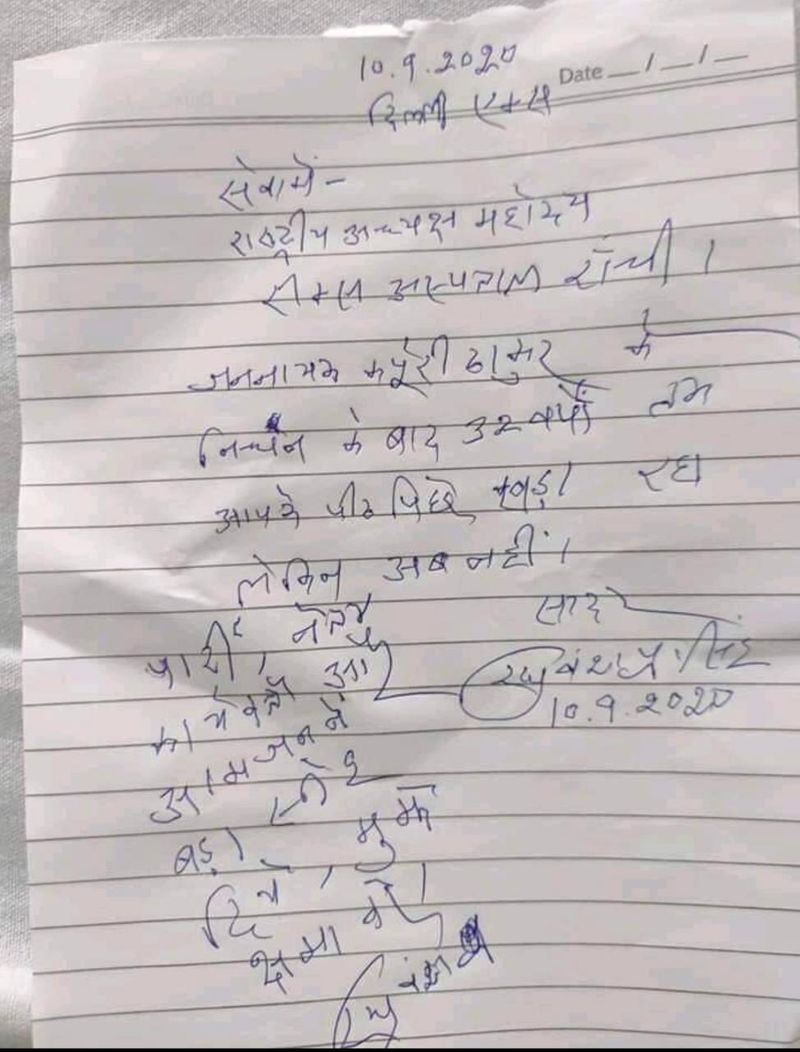 10.9.2020
Date __/__/__
दिल्ली एम्स
सेवा में-
राष्ट्रीय अध्यक्ष महोदय
रिम्स अस्पताल रांची।
जननायक कर्पूरी ठाकुर के
निधन के बाद 32 वर्षों तक
आपके पीठ पीछे खड़ा रहा
लेकिन अब नहीं।
पार्टी, नेता
कार्यकर्ता और
आमजन ने
बड़ा स्नेह
दिया, मुझे
क्षमा करें।
रघुवंश
सादर
रघुवंश प्र. सिंह
10.9.2020